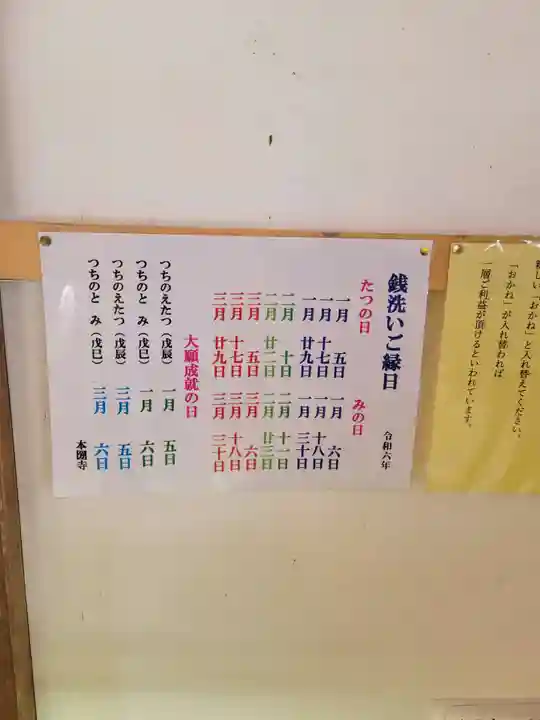 銭洗いご縁日 令和六年
たつの日 みの日
一月 五日 一月 六日
一月 十七日 一月 十八日
一月 廿九日 一月 三十日
二月 十日 二月 十一日
二月 廿二日 二月 廿三日
三月 五日 三月 六日
三月 十七日 三月 十八日
三月 廿九日 三月 三十日
大願成就の日
つちのえたつ（戊辰） 一月 五日
つちのと み（戊巳） 一月 六日
つちのえたつ（戊辰） 三月 五日
つちのと み（戊巳） 三月 六日
本圀寺
新しい「おかね」と入れ替えてください。
「おかね」が入れ替われば
一層ご利益が頂けるといわれています。